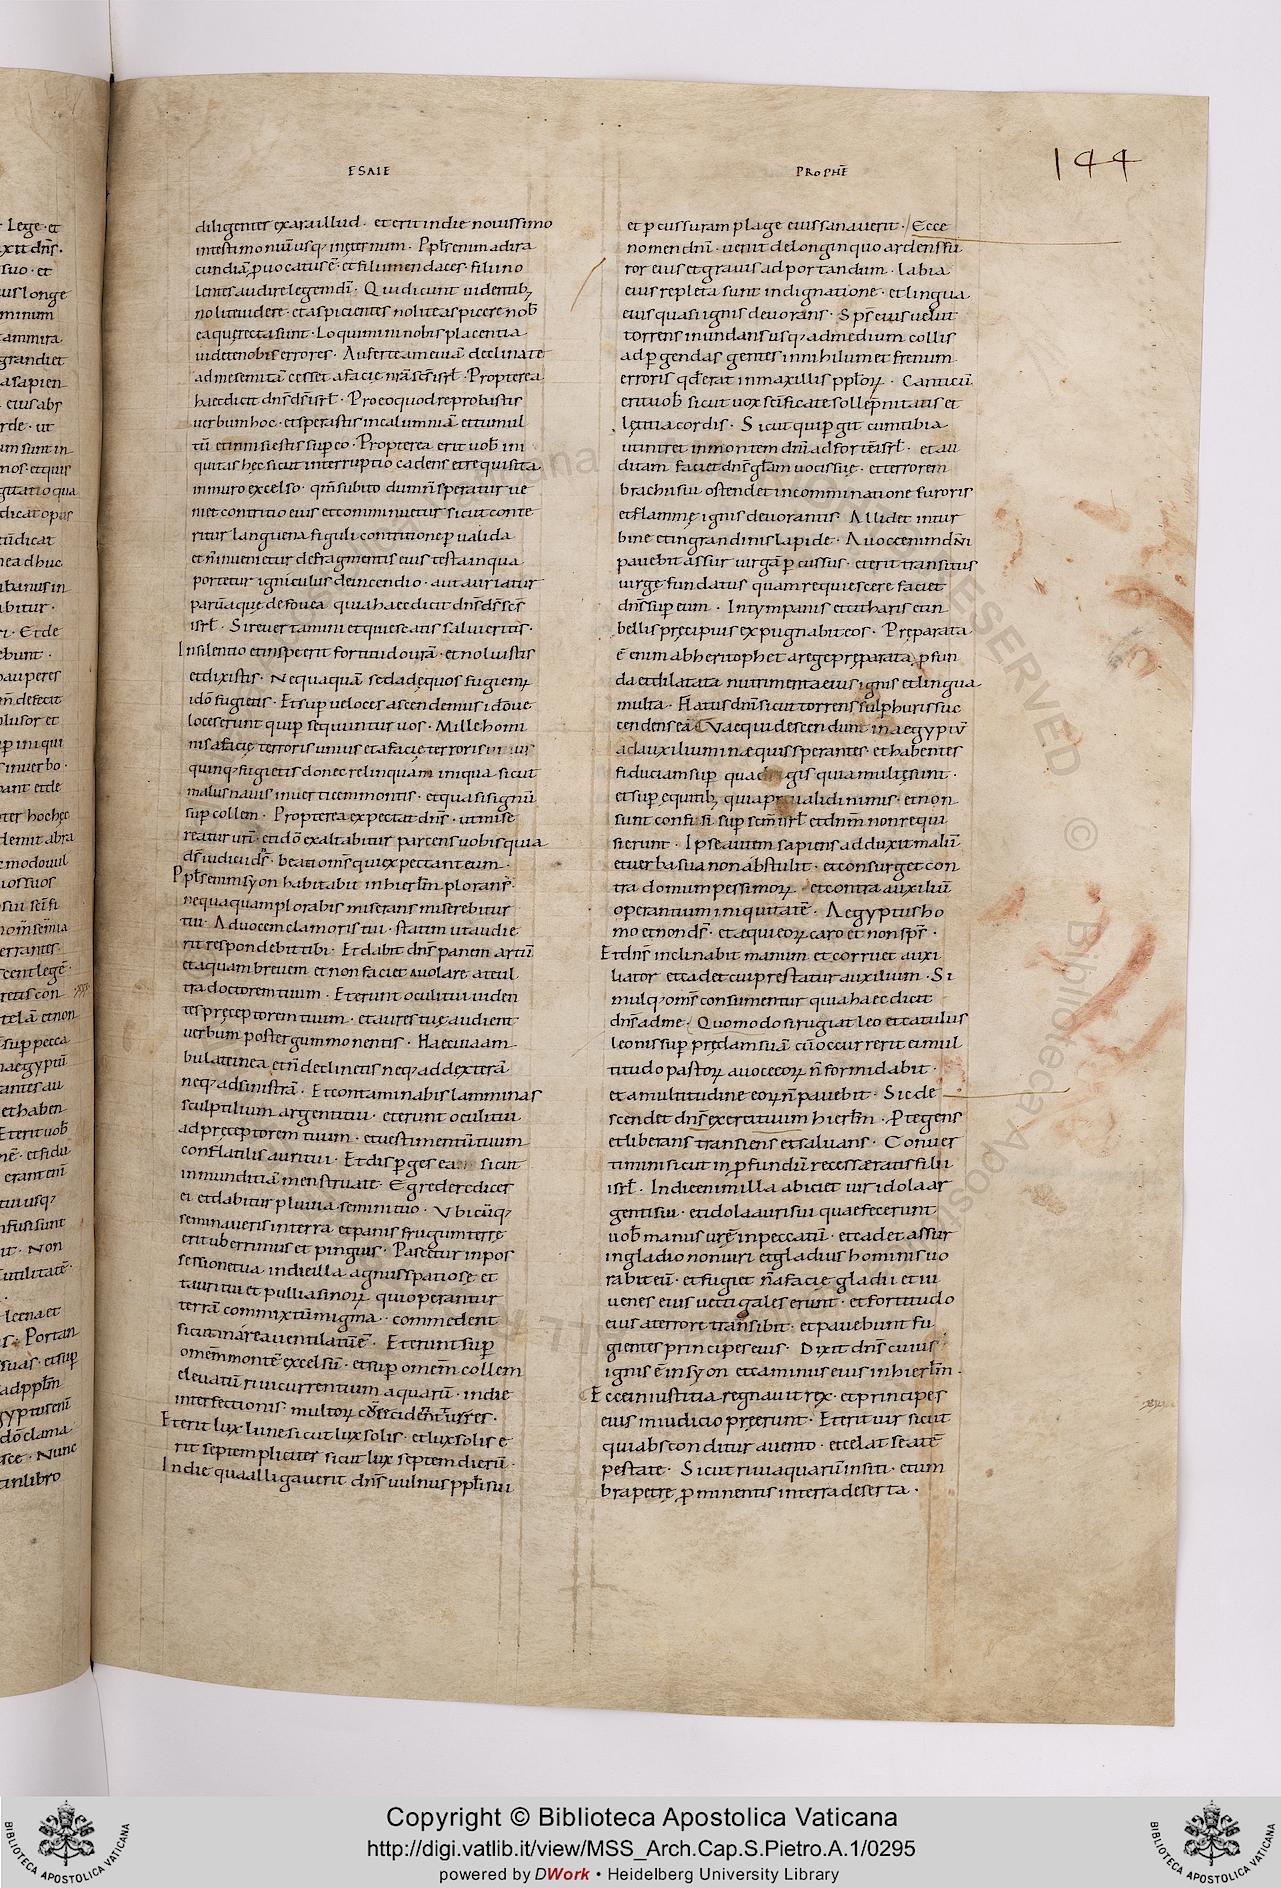 ESAIE
PROPHĒ
144
diligenter exara illud · et erit in die nouissimo
in testimoniū usq; in ęternum · Ppłs enim ad ira
cundiā puocatus ē · et filii mendaces · filii no
lentes audire legem dī · Qui dicunt uidentib;
nolite uidere · et aspicientes nolite aspicere nob̄
ea quę recta sunt · Loquimini nobis placentia
uidete nobis errores · Auferte a me uiā declinate
ad me semitā cesset a facie nrā scs̄ isrł · Propterea
haec dicit dn̄s ds̄ isrł · Pro eo quod reprobastis
uerbum hoc · et sperastis in calumniā et tumul
tū et innisi estis sup eo · Propterea erit uob̄ ini
quitas hęc sicut interruptio cadens et requisita
in muro excelso · qm̄ subito dum n̄ speratur ue
niet contritio eius et comminuetur sicut conte
ritur languena figuli contritione p ualida
et n̄ inuenietur de fragmentis eius testa in qua
portetur igniculus de incendio · aut auriatur
parū aque de fouea quia haec dicit dn̄s ds̄ scs̄
isrł · Si reuertamini et quiescatis salui eritis ·
In silentio et in spe erit fortitudo urā · et noluistis
et dixistis · Nequaquā sed ad ęquos fugiem;
idō fugietis · Et sup ueloces ascendemus idō ue
loces erunt qui psequuntur uos · Mille homi
nis a facie terroris unius et a facie terroris
quinq; fugietis donec relinquam iniqua sicut
malus nauis in uertice montis · et quasi signū
sup collem · Propterea expectat dn̄s · ut mise
reatur urī · et idō exaltabitur parcens uobis quia
ds̄ iudicii ds̄ · beati oms̄ qui expectant eum ·
Ppłs enim syon habitabit in hierłm plorans ·
nequaquam plorabis miserans miserebitur
tui · Ad uocem clamoris tui · statim ut audie
rit respondebit tibi · Et dabit dn̄s panem artū
et aquam breuem et non faciet auolare a te ul
tra doctorem tuum · Et erunt oculi tui uiden
tes pręceptorem tuum · et aures tuę audient
uerbum post tergum monentis · Haec uia am
bulate in ea et n̄ declinetis neq; ad dexterā
neq; ad sinistrā · Et contaminabis lamminas
sculptilium argenti tui · et erunt oculi tui
ad pręceptorem tuum · et uestimentū tuum
conflatilis auri tui · Et disperges ea sicut
inmunditiā menstruate · Egredere dices
ei et dabitur pluuia semini tuo · Vbicūq;
seminaueris in terra et panis frugum terrę
erit uberrimus et pinguis · Pascetur in pos
sessione tua in die illa agnus spatiose et
tauri tui et pulli asinoꝝ qui operantur
terrā commixtū migma · commedent
sicut in area uentilatū ē · Et erunt sup
omem montē excelsū · et sup omem collem
eleuatū riui currentium aquarū · in die
interfectionis · multoꝝ cū ceciderīt turres ·
Et erit lux lune sicut lux solis · et lux solis e
rit septempliciter sicut lux septem dierū ·
In die qua alligauerit dn̄s uulnus ppłi sui
et pcussuram plage eius sanauerit · Ecce
nomen dnī · uenit de longinquo ardens fu
ror eius et grauis ad portandum · labia
eius repleta sunt indignatione · et lingua
eius quasi ignis deuorans · Sps̄ eius uelut
torrens inundans usq; ad medium collis
ad pgendas gentes in nihilum et frenum
erroris qd̄ erat in maxillis ppłoꝝ · Canticū
erit uob̄ sicut uox scīficate sollepnitatis et
lętitia cordis · Sicut qui pgit cum tibia
ut intret in montem dnī ad fortē isrł · et au
ditam faciet dn̄s głam uocis suę · et terrorem
brachii sui ostendet in comminatione furoris
et flammę ignis deuorantis · Allidet in tur
bine et in grandinis lapide · A uoce enim dnī
pauebit assur uirga pcussus · et erit transitus
uirgę fundatus quam requiescere faciet
dn̄s sup eum · In tympanis et citharis et in
bellis pręcipuis expugnabit eos · Pręparata
ē enim ab heri tophet a rege pręparata pfun
da et dilatata nutrimenta eius ignis et lingua
multa · Flatus dnī sicut torrens sulphuris suc
cendens eā Vae qui descendunt in aegyptū
ad auxilium in ęquis sperantes · et habentes
fiduciam sup quadrigis quia multę sunt ·
et sup equitib; quia pręualidi nimis · et non
sunt confisi sup scm̄ isrł et dnm̄ non requi
sierunt · Ipse autem sapiens adduxit malū
et uerba sua non abstulit · et consurget con
tra domum pessimoꝝ · et contra auxiliū
operantium iniquitatē · Aegyptus ho
mo et non ds̄ · et aequi eoꝝ caro et non sps̄ ·
Et dn̄s inclinabit manum et corruet auxi
liator et cadet cui prestatur auxilium · Si
mulq; oms̄ consumentur quia haec dicit
dn̄s ad me · Quomodo si rugiat leo et catulus
leonis sup prędam suā cū occurrerit ei mul
titudo pastoꝝ a uoce eoꝝ n̄ formidabit ·
et a multitudine eoꝝ n̄ pauebit · Sic de
scendet dn̄s exercituum hierłm · Ptegens
et liberans transiens et saluans · Conuer
timini sicut in pfundū recesseratis filii
isrł · In die enim illa abiciet uir idola ar
genti sui · et idola auri sui quae fecerunt
uob̄ manus urę in peccatū · et cadet assur
in gladio non uiri et gladius hominis uo
rabit eū · et fugiet n̄ a facie gladii et iu
uenes eius uectigales erunt · et fortitudo
eius a terrore transibit · et pauebunt fu
gientes principes eius · Dixit dn̄s cuius
ignis ē in syon et caminus eius in hierłm ·
Ecce in iustitia regnauit rex · et principes
eius in iudicio pręerunt · Et erit uir sicut
qui absconditur a uento · et celat se a tē
pestate · Sicut riui aquarū in siti · et um
bra petrę pminentis in terra deserta ·
Copyright © Biblioteca Apostolica Vaticana
http://digi.vatlib.it/view/MSS_Arch.Cap.S.Pietro.A.1/0295
powered by DWork • Heidelberg University Library
BIBLIOTECA APOSTOLICA VATICANA
BIBLIOTECA APOSTOLICA VATICANA